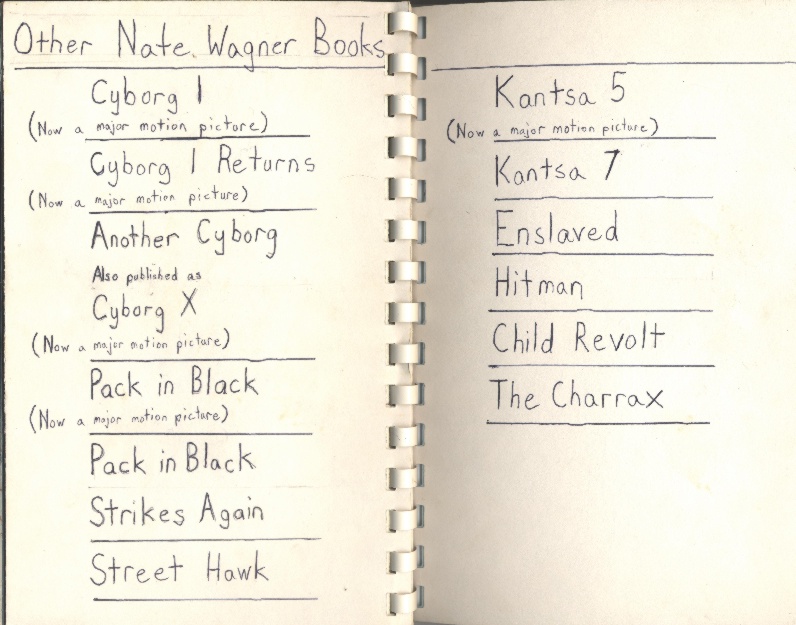 Other Nate Wagner Books
Cyborg 1
(Now a major motion picture)
Cyborg 1 Returns
(Now a major motion picture)
Another Cyborg
Also published as
Cyborg X
(Now a major motion picture)
Pack in Black
(Now a major motion picture)
Pack in Black
Strikes Again
Street Hawk
Kantsa 5
(Now a major motion picture)
Kantsa 7
Enslaved
Hitman
Child Revolt
The Charrax